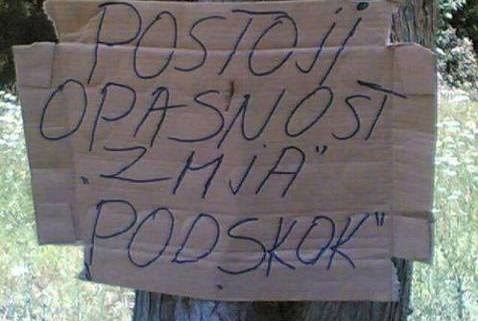 POSTOJi
OPASNOST
„ZMiJA"
„PODSKOK"